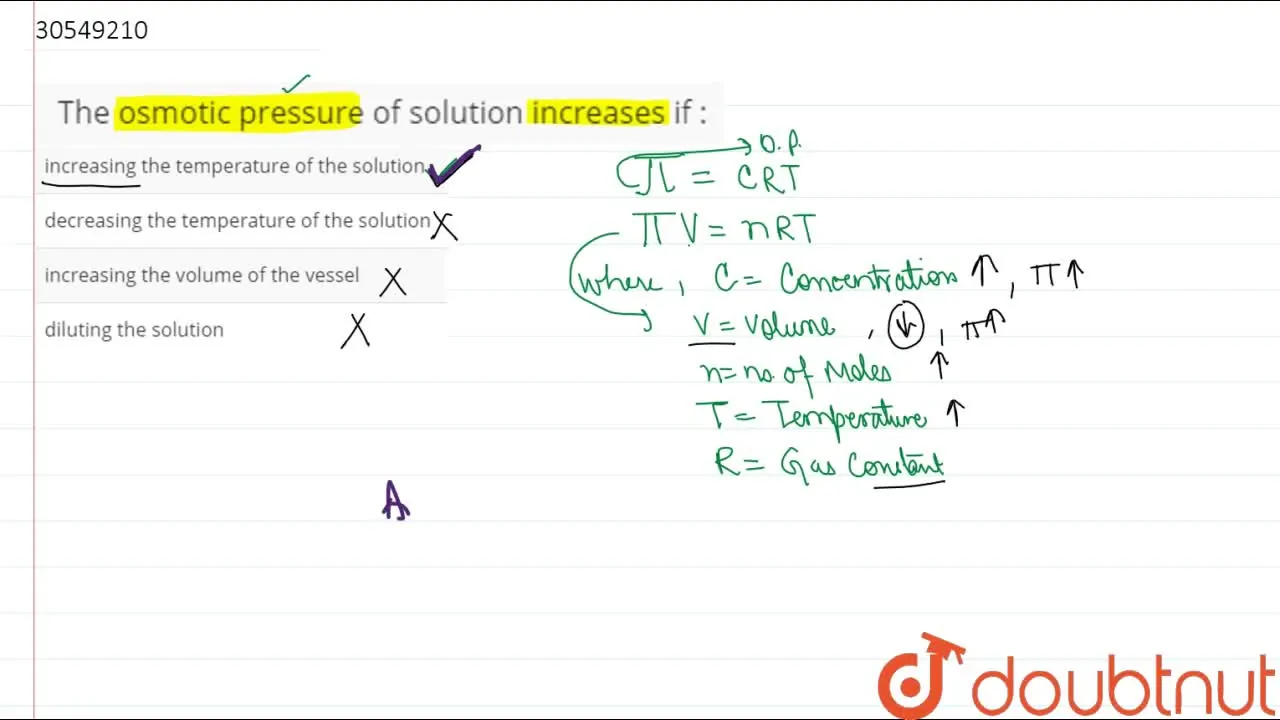 30549210
The osmotic pressure of solution increases if :
increasing the temperature of the solution
decreasing the temperature of the solution X
increasing the volume of the vessel X
diluting the solution X
→ O.P.
π = CRT
πV = nRT
where, C = Concentration ↑, π↑
V = Volume, ↓, π↑
n = no. of Moles ↑
T = Temperature ↑
R = Gas Constant
A
doubtnut